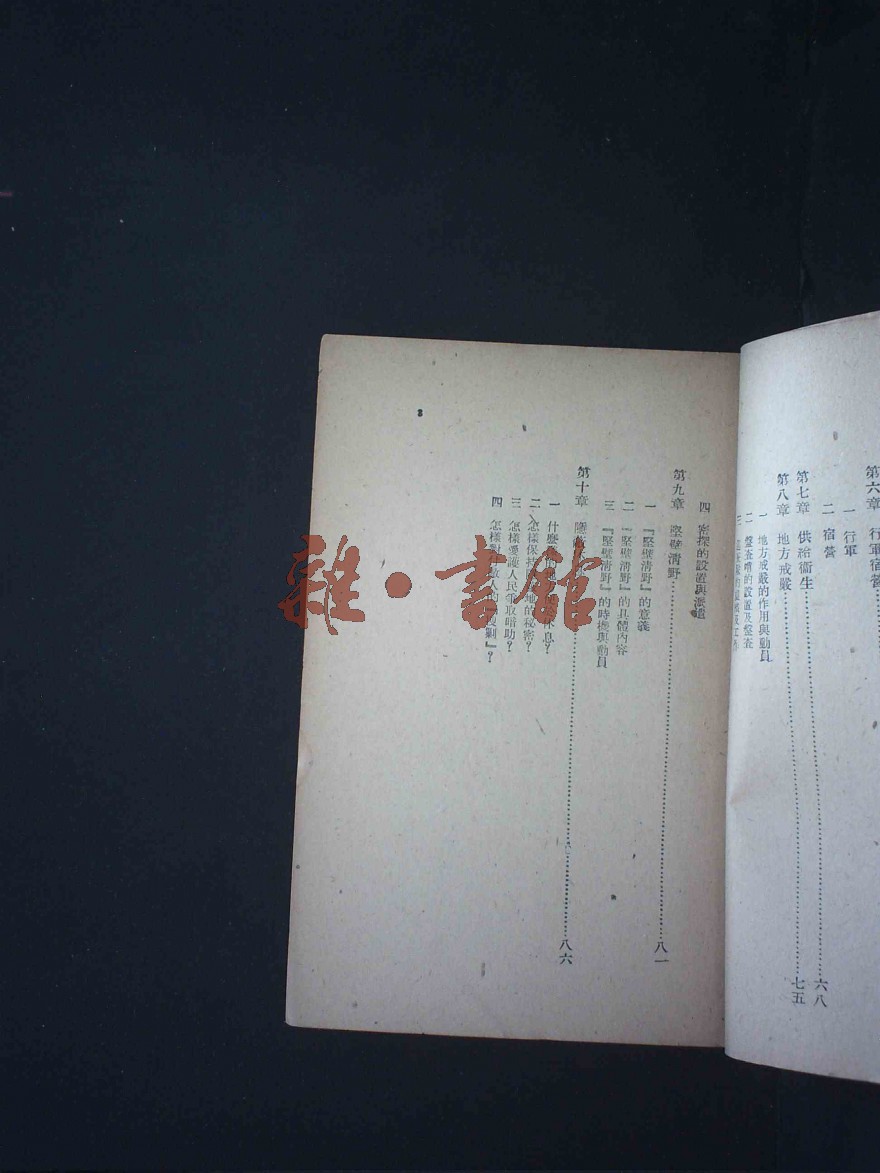 第六章 行軍宿營
一 行軍
二 宿營
第七章 供給衞生……六八
第八章 地方戒嚴……七五
一 地方戒嚴的作用與動員
二 盤查哨的設置及盤查
三
四 密探的設置與派遣
第九章 堅壁清野……八一
一 『堅壁清野』的意義
二 『堅壁清野』的具體內容
三 『堅壁清野』的時機與動員
第十章……八六
一 什麽 息？
二 怎樣保持 的秘密？
三 怎樣愛護人民爭取暗助？
四 怎樣對 敵人 剿』？
雜·書館